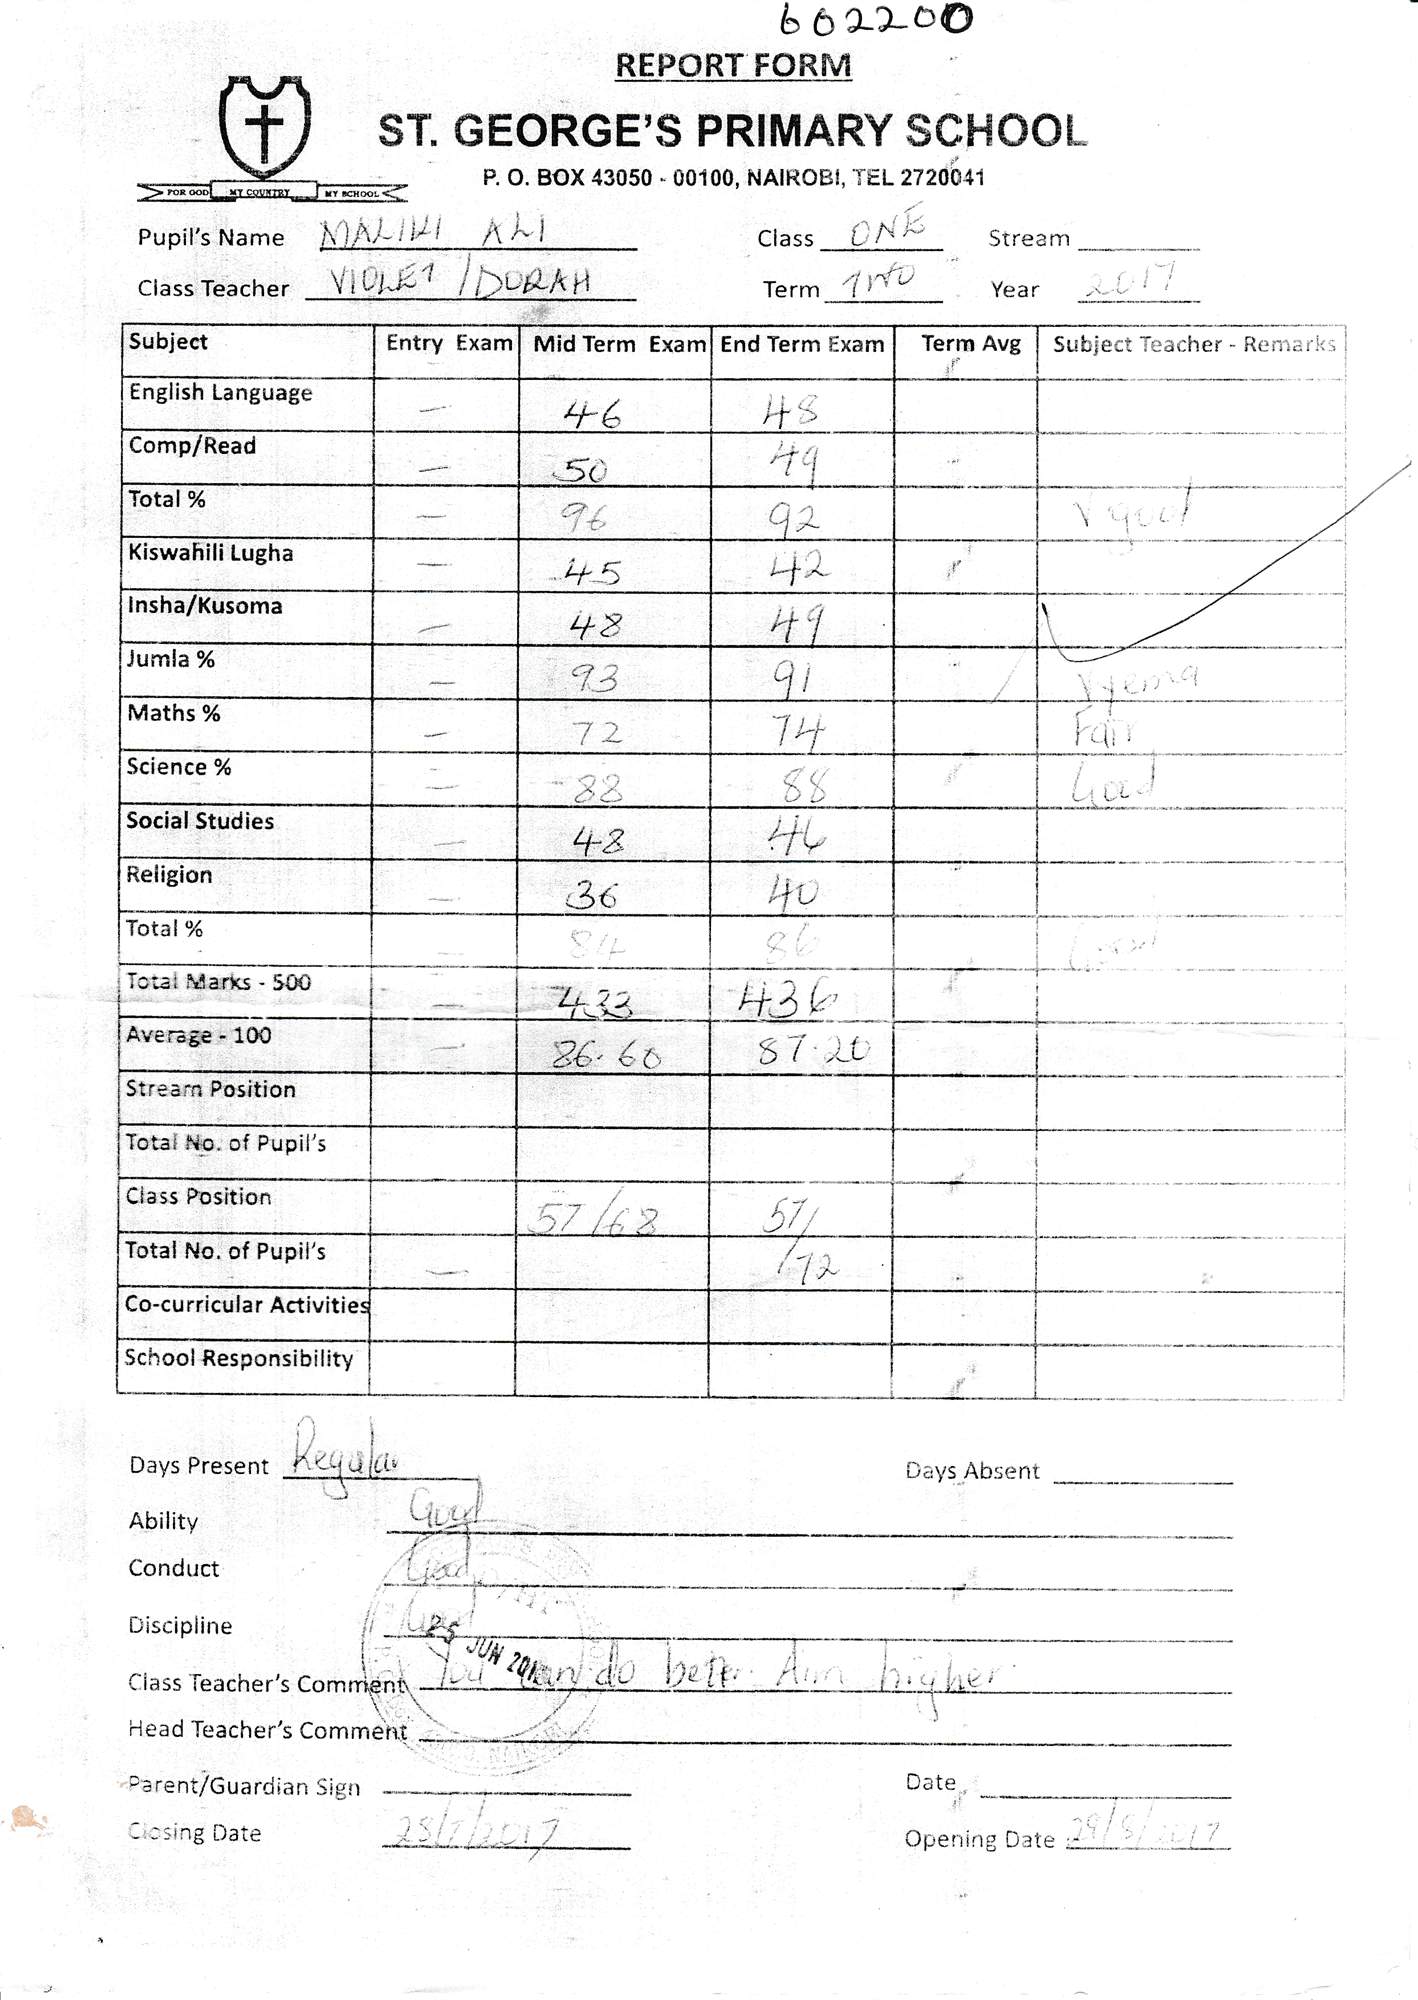 602200
REPORT FORM
ST. GEORGE'S PRIMARY SCHOOL
P. O. BOX 43050 - 00100, NAIROBI, TEL 2720041
FOR GOD MY COUNTRY MY SCHOOL
Pupil's Name MALIKI ALI Class ONE Stream
Class Teacher VIOLET/DORAH Term TWO Year 2017
Subject Entry Exam Mid Term Exam End Term Exam Term Avg Subject Teacher - Remarks
English Language — 46 48
Comp/Read — 50 49
Total % — 96 92 V good
Kiswahili Lugha — 45 42
Insha/Kusoma — 48 49
Jumla % — 93 91 Vyema
Maths % — 72 74 Fair
Science % — 88 88 Good
Social Studies — 48 46
Religion — 36 40
Total % — 84 86 Good
Total Marks - 500 — 433 436
Average - 100 — 86.60 87.20
Stream Position
Total No. of Pupil's
Class Position 57/68 57/
Total No. of Pupil's — 72
Co-curricular Activities
School Responsibility
Days Present Regular Days Absent
Ability Good
Conduct Good
Discipline Good
25 JUN 201
Class Teacher's Comment You can do better. Aim higher.
Head Teacher's Comment
Parent/Guardian Sign Date
Closing Date 28/7/2017 Opening Date 29/8/2017